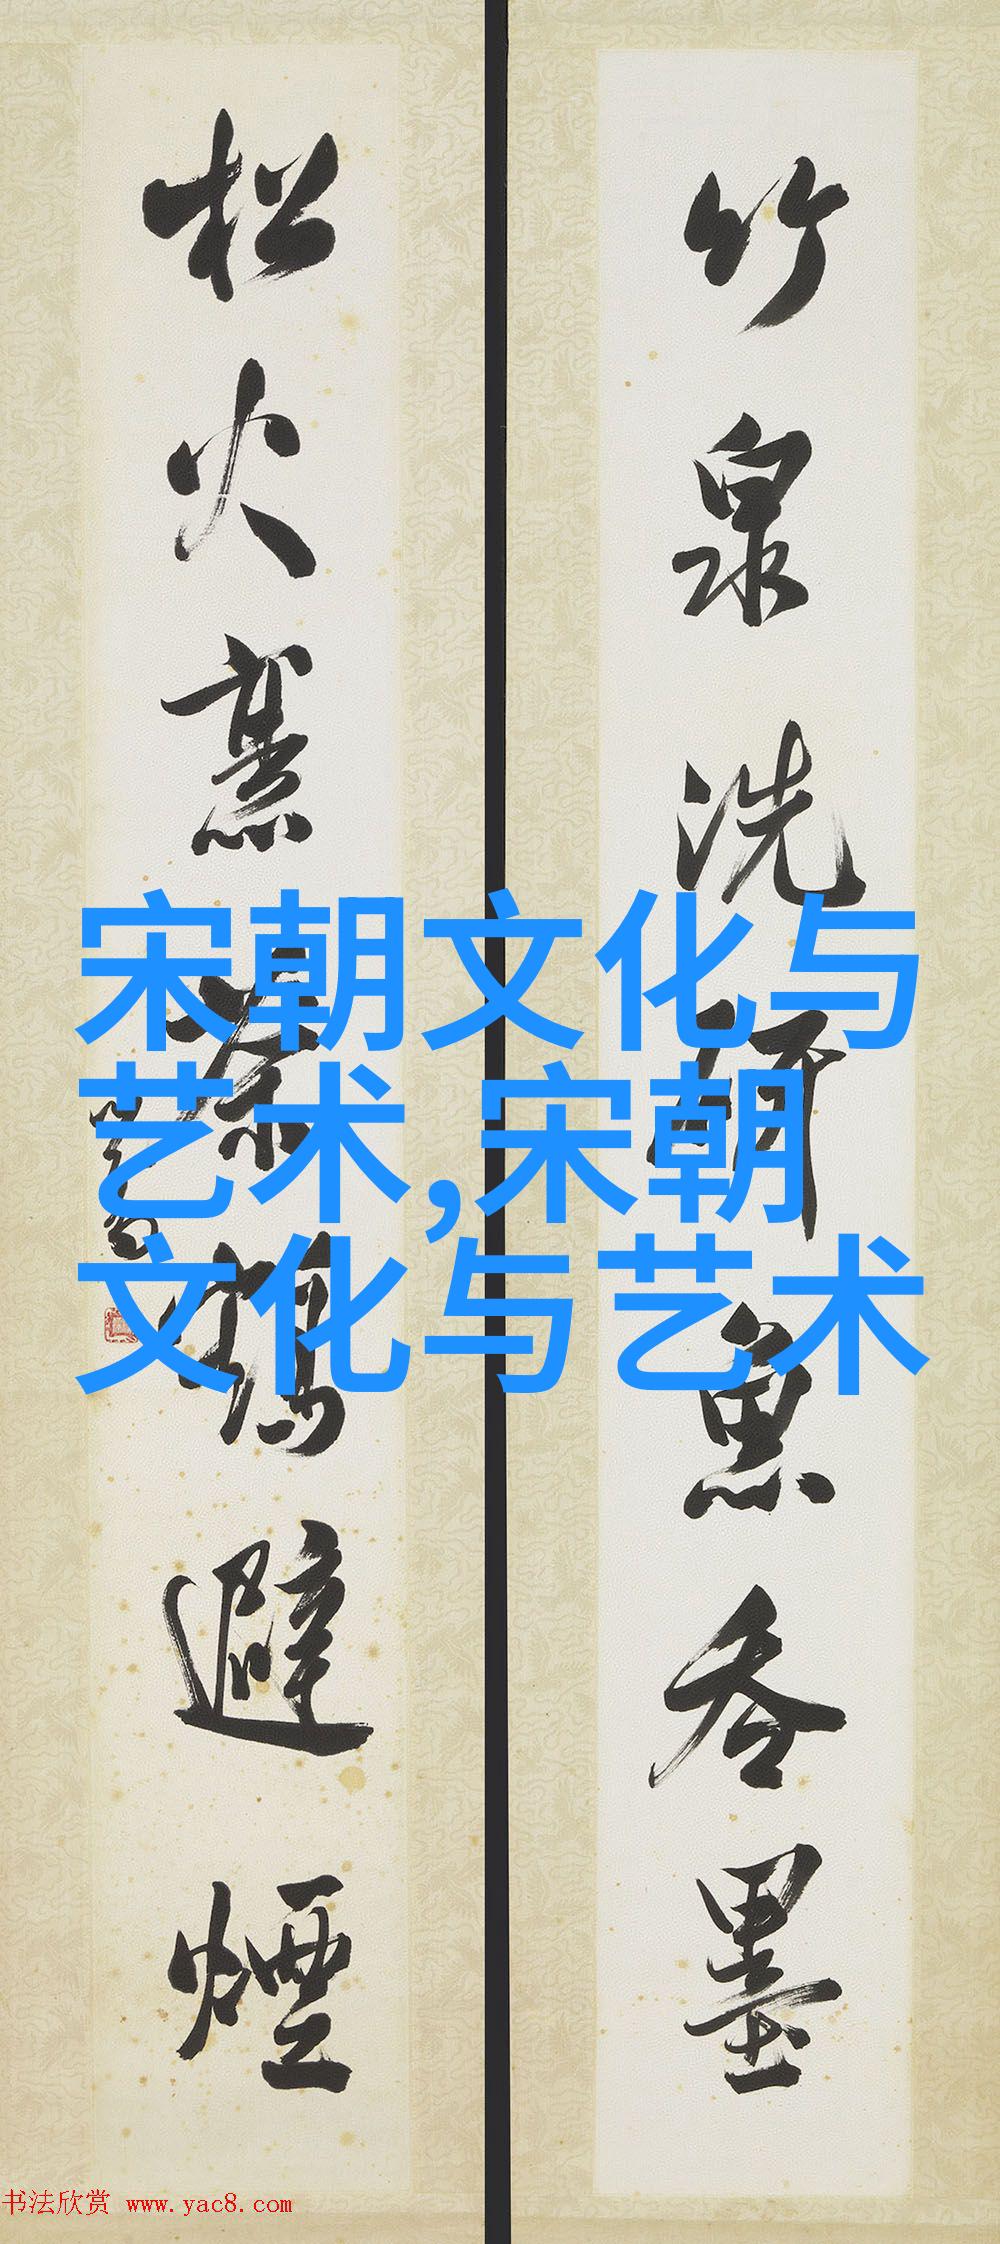 竹泉洗研魚吞墨
松火烹茶鶴避煙
宋朝文化与
艺术,宋朝
文化与艺术
书法欣赏 www.yac8.com